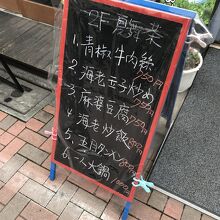 2F 夏舞菜
1. 青椒牛肉絲 750円
2. 海老玉子炒め 750円
3. 麻婆豆腐 750円
4. 海老炒飯 750円
5. 五目タンメン 800円
6. 一人火鍋 800円